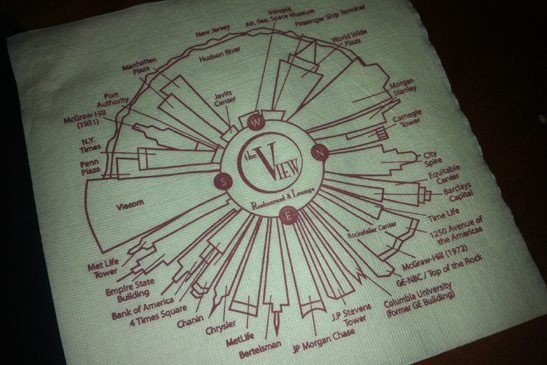 Intrepid
Air, Sea, Space Museum
Passenger Ship Terminal
World Wide
Plaza
Morgan
Stanley
Carnegie
Tower
City
Spire
Equitable
Center
Barclays
Capital
Time Life
1250 Avenue of
the Americas
Rockefeller Center
McGraw-Hill (1972)
GE-NBC / Top of the Rock
Columbia University
(former GE Building)
J.P Stevens
Tower
JP Morgan Chase
Bertelsman
MetLife
Chrysler
Chanin
4 Times Square
Bank of America
Empire State
Building
Met Life
Tower
Viacom
Penn
Plaza
N.Y.
Times
McGraw-Hill
(1981)
Port
Authority
Manhattan
Plaza
New Jersey
Hudson River
Javits
Center
W
N
E
S
the
VIEW
Restaurant & Lounge